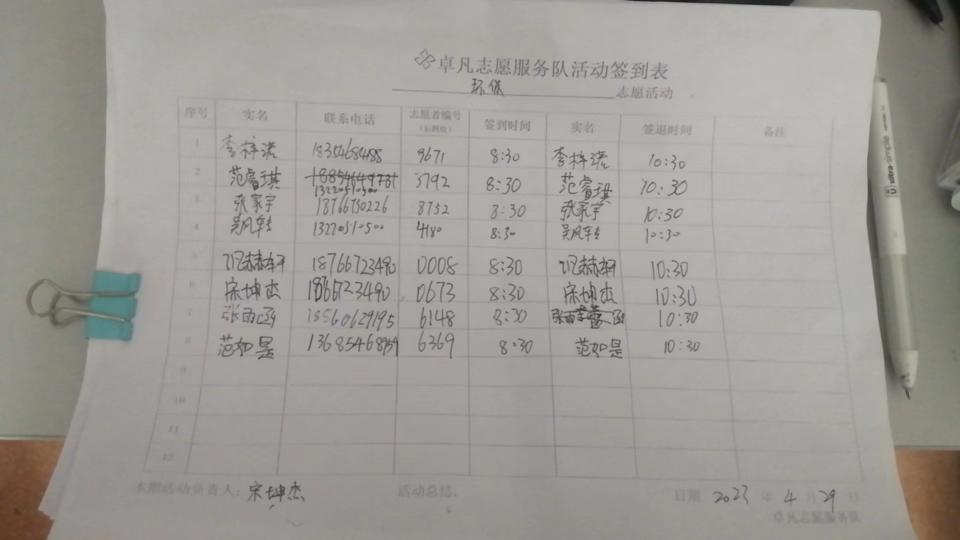 卓凡志愿服务队活动签到表
环保 志愿活动
序号 实名 联系电话 志愿者编号 签到时间 实名 签退时间 备注
(后四位)
1 李梓诺 9671 8:30 李梓诺 10:30
2 范睿琪 3792 8:30 范睿琪 10:30
3 张家宇 18766730226 8752 8:30 张家宇 10:30
4 13220510500 4180 8:30 10:30
5 赫轩 18766723490 0008 8:30 赫轩 10:30
6 宋坤杰 0673 8:30 宋坤杰 10:30
7 张雨涵 13560629195 6148 8:30 10:30
8 范如是 6369 8:30 范如是 10:30
9
10
11
12
本期活动负责人: 宋坤杰 活动总结: 日期 2023 年 4 月 29 日
卓凡志愿服务队